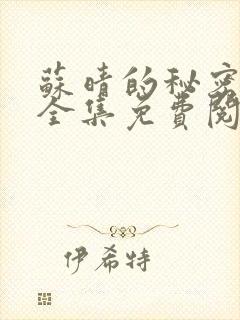 蘇晴的秘密
全集免費閱
伊希特